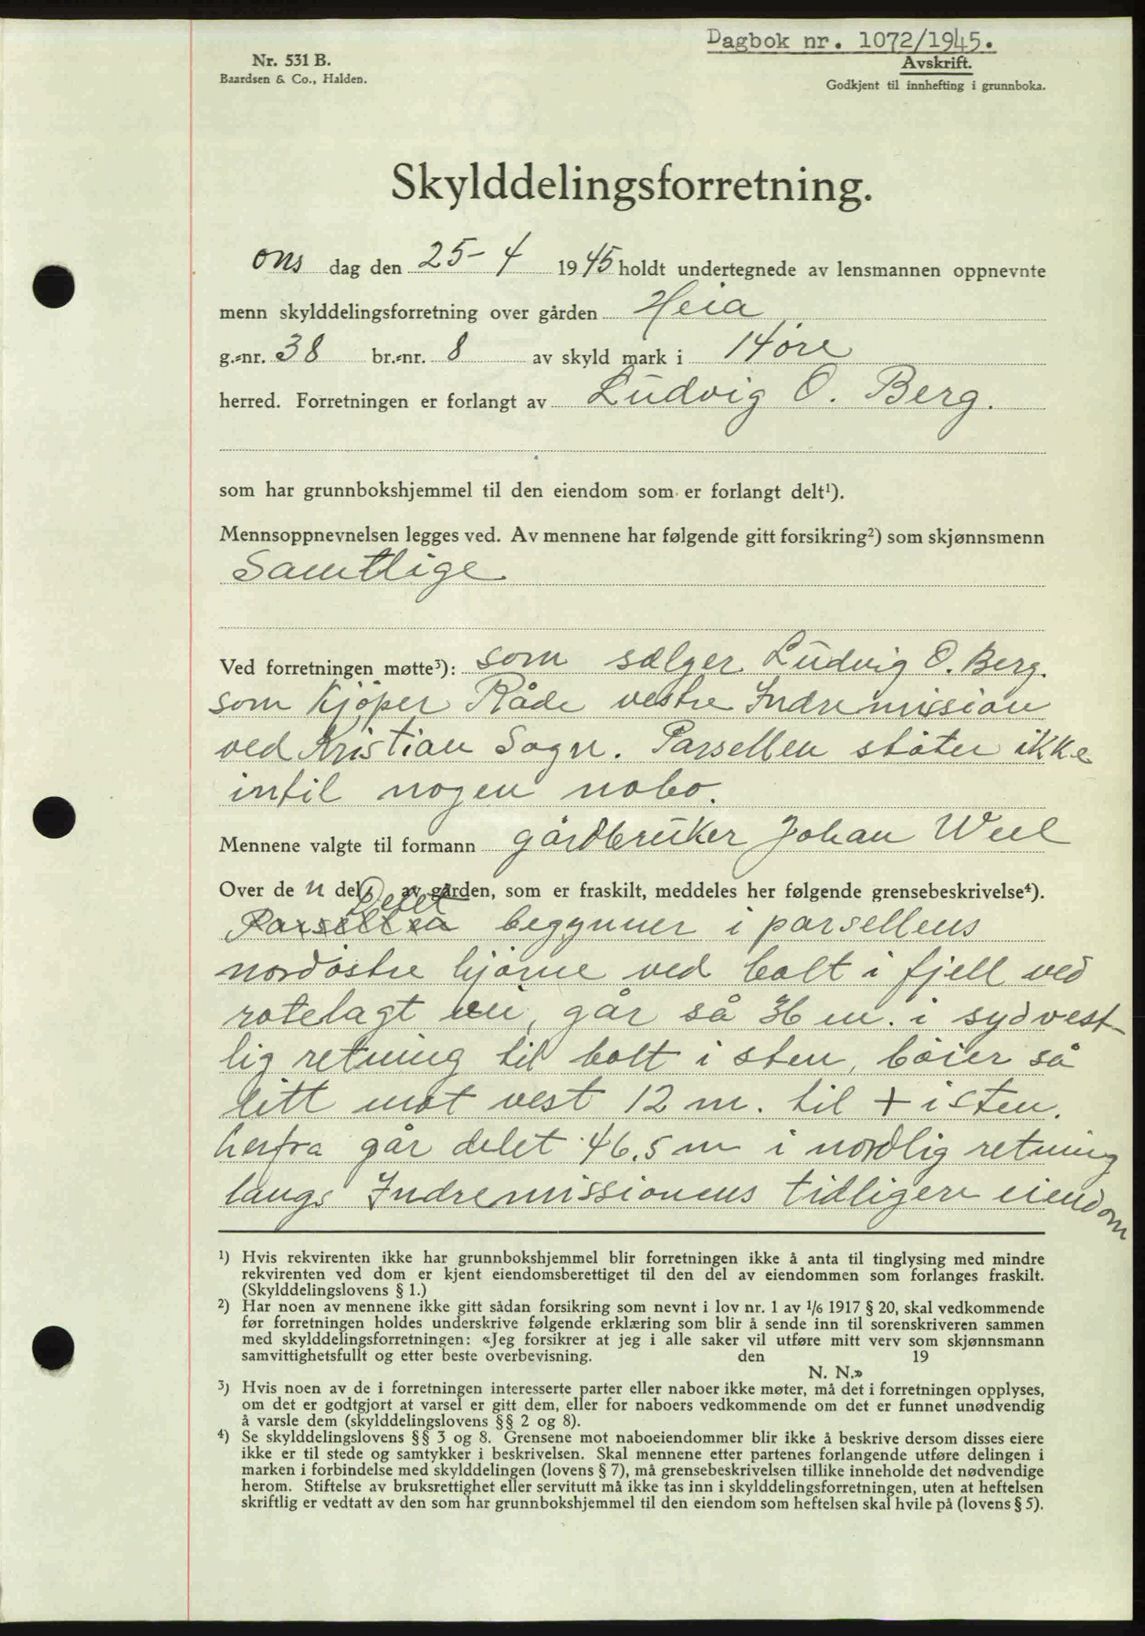 Dagbok nr. 1072/1945.
Nr. 531 B.
Avskrift.
Baardsen & Co., Halden.
Godkjent til innhefting i grunnboka.
Skylddelingsforretning.
ons dag den 25-4 1945 holdt undertegnede av lensmannen oppnevnte
menn skylddelingsforretning over gården Heia
g.-nr. 38 br.-nr. 8 av skyld mark i 14 øre
herred. Forretningen er forlangt av Ludvig O. Berg.
som har grunnbokshjemmel til den eiendom som er forlangt delt¹).
Mennsoppnevnelsen legges ved. Av mennene har følgende gitt forsikring²) som skjønnsmenn
Samtlige
Ved forretningen møtte³): som sælger Ludvig O. Berg.
som Kjøper Råde vestre Indremission
ved Kristian Sogn. Parsellen støter ikke
intil nogen nabo.
Mennene valgte til formann gårdbruker Johan Weel
Over de n del, av gården, som er fraskilt, meddeles her følgende grensebeskrivelse⁴).
Delet
Parsellen begynner i parsellens
nordöstre hjörne ved bolt i fjell ved
rotelagt vei, går så 36 m. i sydvest-
lig retning til bolt i sten, böier så
litt mot vest 12 m. til + i sten.
herfra går delet 46,5 m i nordlig retning
langs Indremissionens tidligere eiendom
¹) Hvis rekvirenten ikke har grunnbokshjemmel blir forretningen ikke å anta til tinglysing med mindre
rekvirenten ved dom er kjent eiendomsberettiget til den del av eiendommen som forlanges fraskilt.
(Skylddelingslovens § 1.)
²) Har noen av mennene ikke gitt sådan forsikring som nevnt i lov nr. 1 av 1/6 1917 § 20, skal vedkommende
før forretningen holdes underskrive følgende erklæring som blir å sende inn til sorenskriveren sammen
med skylddelingsforretningen: «Jeg forsikrer at jeg i alle saker vil utføre mitt verv som skjønnsmann
samvittighetsfullt og etter beste overbevisning. den 19
N. N.»
³) Hvis noen av de i forretningen interesserte parter eller naboer ikke møter, må det i forretningen opplyses,
om det er godtgjort at varsel er gitt dem, eller for naboers vedkommende om det er funnet unødvendig
å varsle dem (skylddelingslovens §§ 2 og 8).
⁴) Se skylddelingslovens §§ 3 og 8. Grensene mot naboeiendommer blir ikke å beskrive dersom disses eiere
ikke er til stede og samtykker i beskrivelsen. Skal mennene etter partenes forlangende utføre delingen i
marken i forbindelse med skylddelingen (lovens § 7), må grensebeskrivelsen tillike inneholde det nødvendige
herom. Stiftelse av bruksrettighet eller servitutt må ikke tas inn i skylddelingsforretningen, uten at heftelsen
skriftlig er vedtatt av den som har grunnbokshjemmel til den eiendom som heftelsen skal hvile på (lovens § 5).